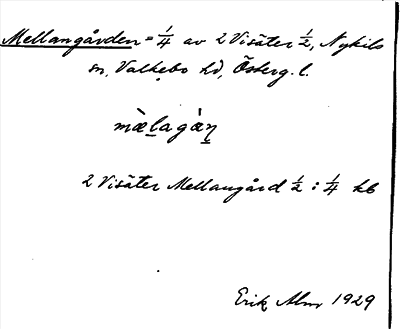 Mellangården = 1/4 av 2 Visäter 1/2, Nykils
sn, Valkebo hd, Österg. l.
mæ̀lagá̀ɳ
2 Visäter Mellangård 1/2 : 1/4 kb
Erik Alm 1929